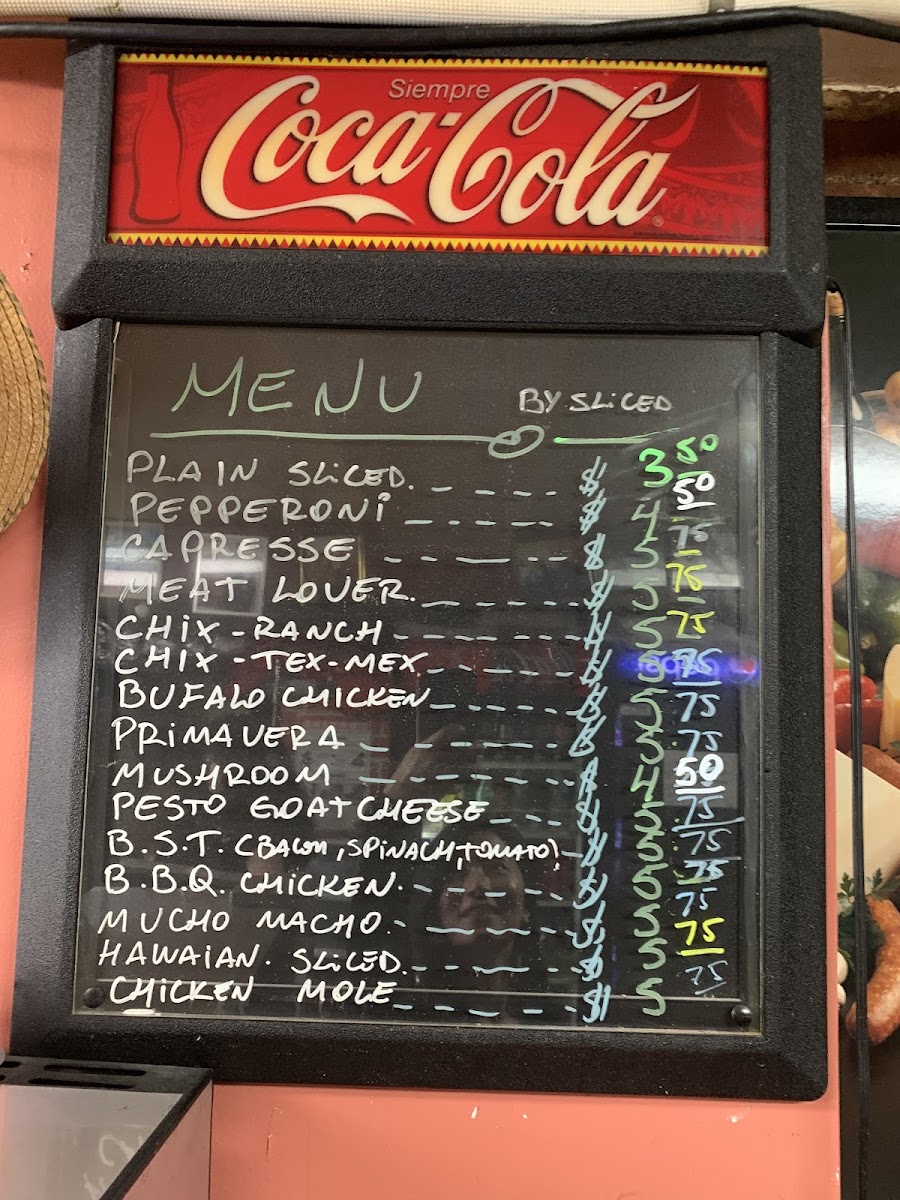 Siempre
Coca-Cola
MENU
BY SLICED
PLAIN SLICED. $ 3 50
PEPPERONI $ 4 50
CAPRESSE $ 5 75
MEAT LOVER. $ 5 75
CHIX - RANCH $ 5 75
CHIX - TEX-MEX $ 5 75
BUFALO CHICKEN $ 5 75
PRIMAVERA $ 5 75
MUSHROOM $ 4 50
PESTO GOAT CHEESE $ 5 75
B.S.T. (BACON, SPINACH, TOMATO) $ 5 75
B.B.Q. CHICKEN. $ 5 75
MUCHO MACHO. $ 5 75
HAWAIAN. SLICED. $ 5 75
CHICKEN MOLE $ 5 75